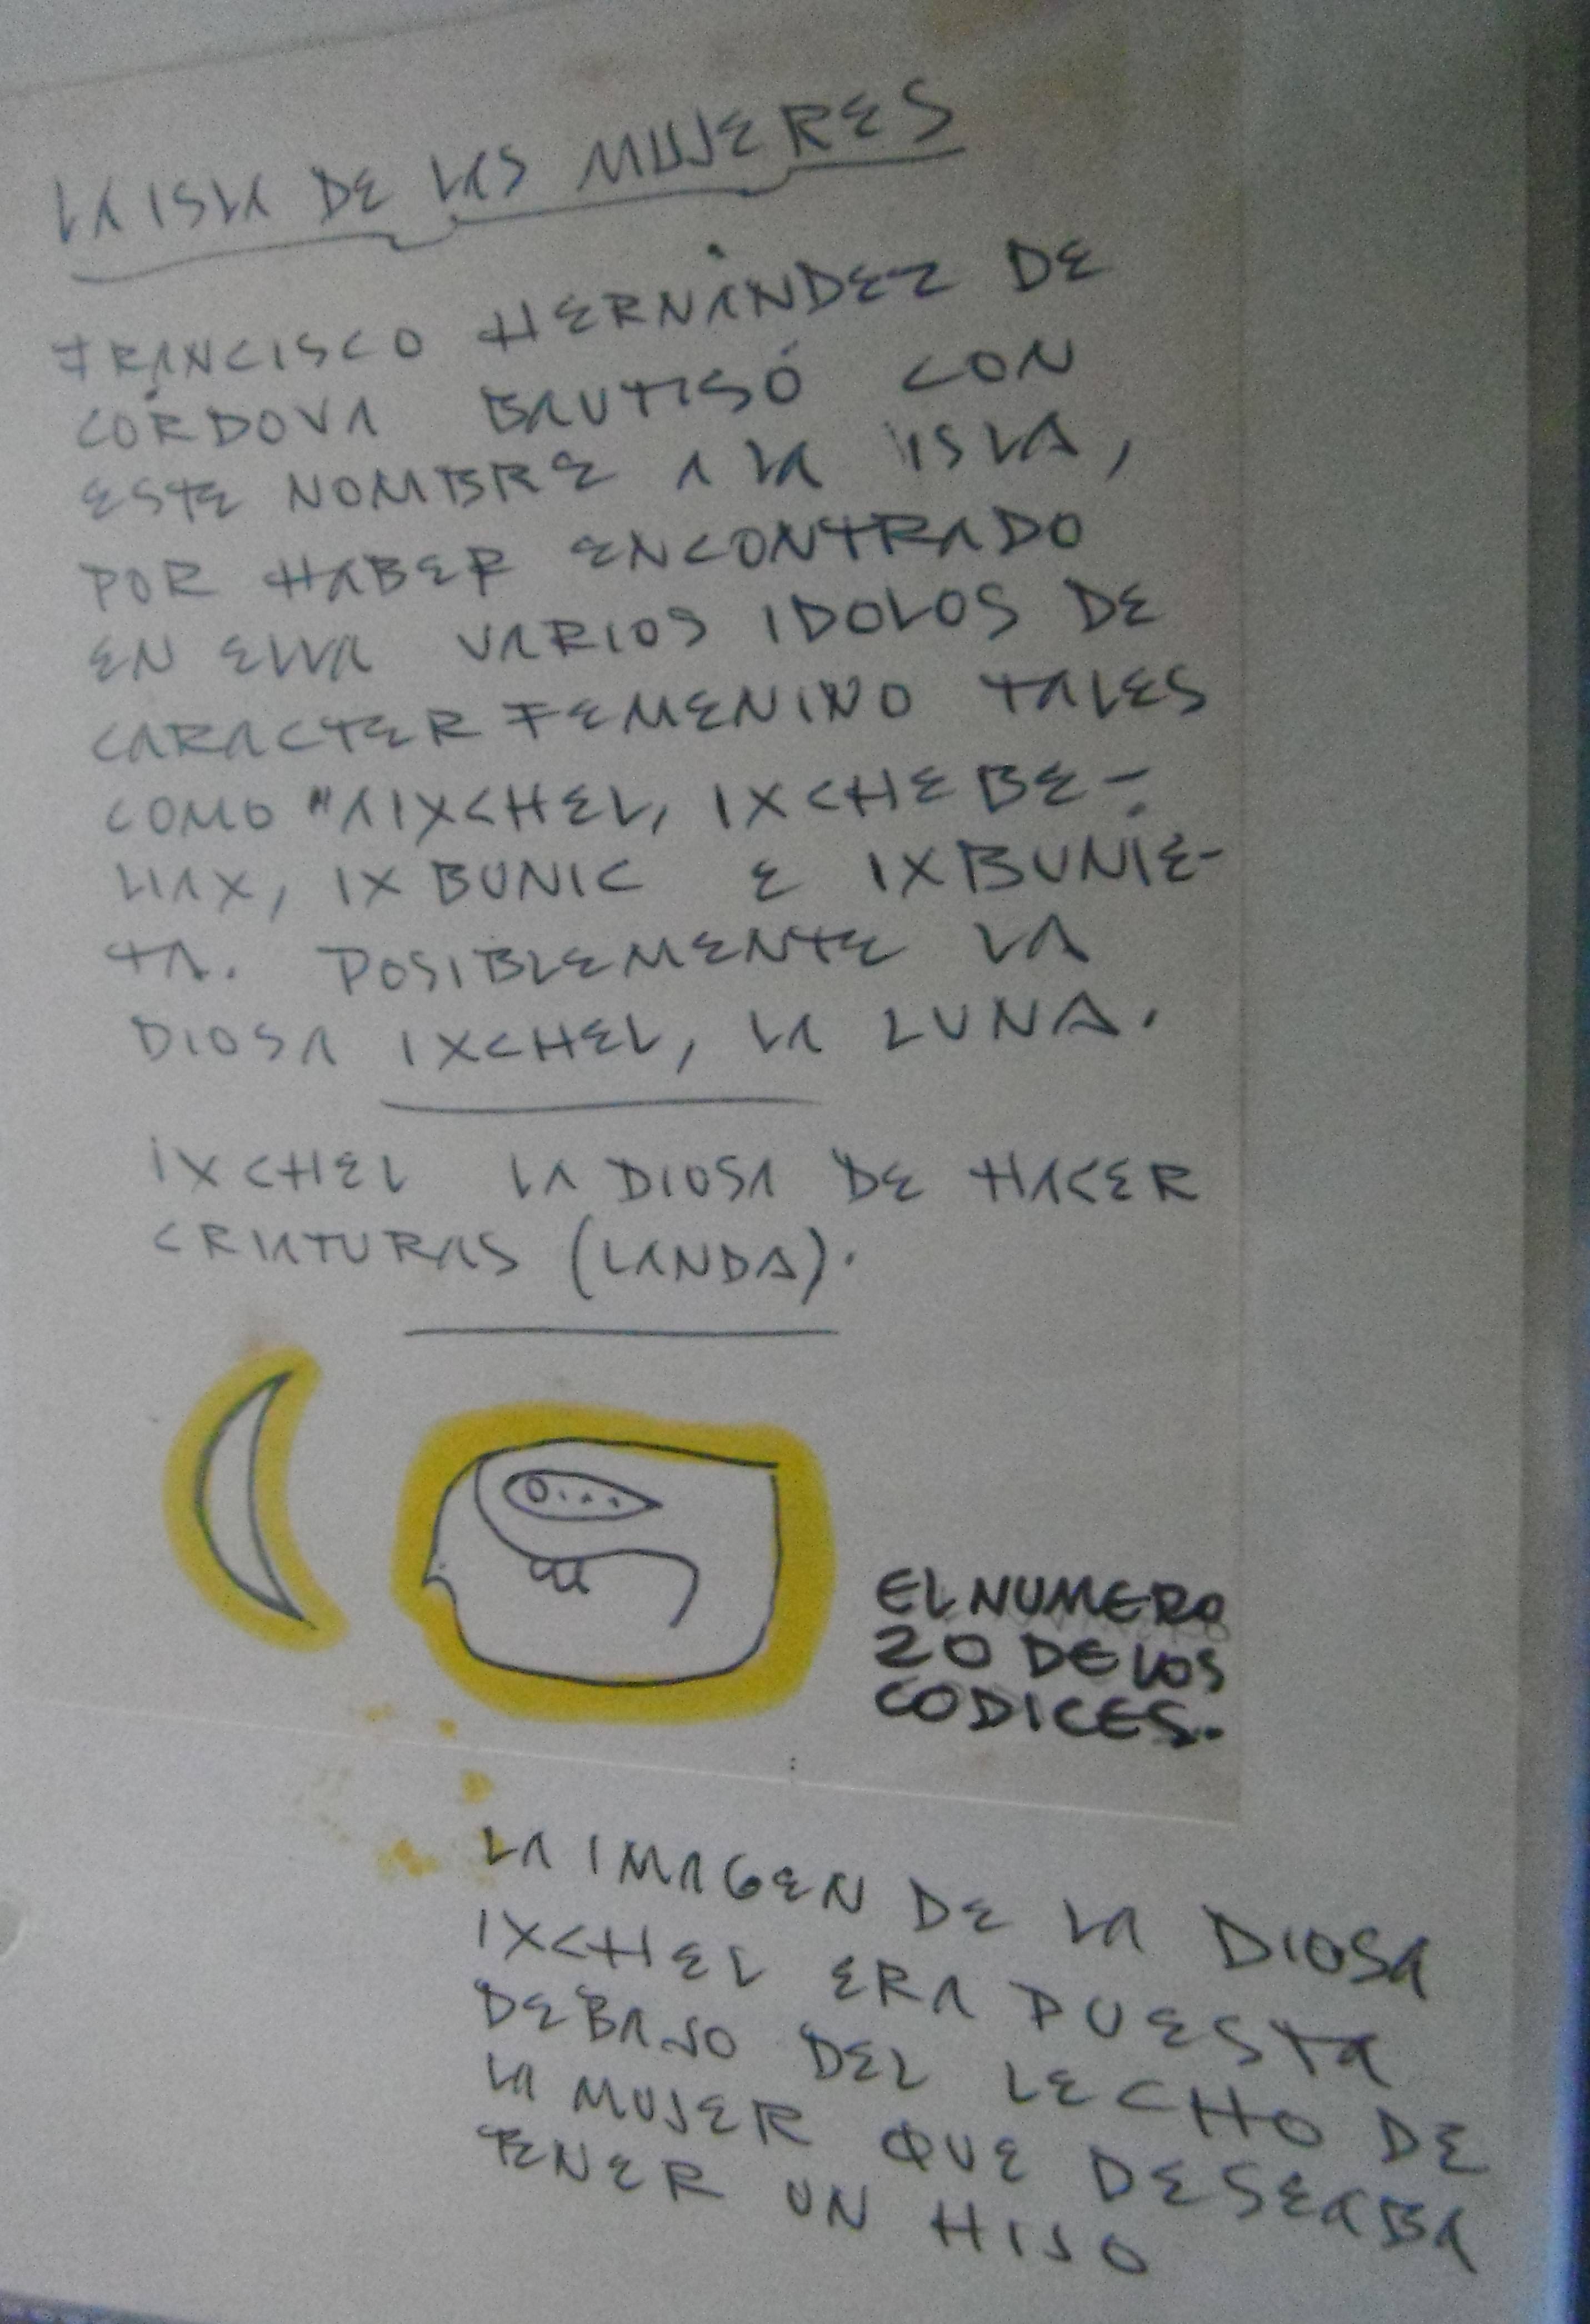 LA ISLA DE LAS MUJERES
FRANCISCO HERNÁNDEZ DE
CÓRDOVA BAUTISÓ CON
ESTE NOMBRE A LA ISLA,
POR HABER ENCONTRADO
EN ELLA VARIOS IDOLOS DE
CARACTER FEMENINO TALES
COMO "AIXCHEL, IXCHEBE-
LIAX, IX BUNIC E IXBUNIÉ-
TA. POSIBLEMENTE LA
DIOSA IXCHEL, LA LUNA.
IXCHEL LA DIOSA DE HACER
CRIATURAS (LANDA).
EL NUMERO
20 DE LOS
CODICES.
LA IMAGEN DE LA DIOSA
IXCHEL ERA PUESTA
DEBAJO DEL LECHO DE
LA MUJER QUE DESEABA
TENER UN HIJO